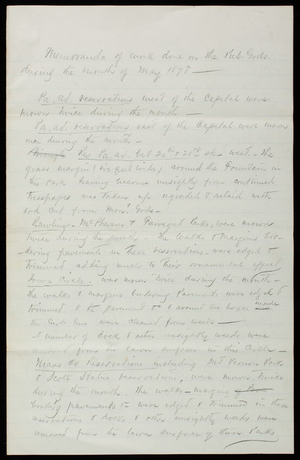 Memoranda of work done on the Pub. Grds.
during the month of May 1878 —
Pa. av. reservations west of the Capitol were
mown twice during the month —
Pa. av. reservations east of the Capitol were mown
once during the month —
Pa. av. bet 20th & 21st sts. west — The
grass margin (two feet wide) around the Fountain in
this Park having become unsightly from continued
trespasses was taken up regraded & relaid with
sod cut from Mon't Grds —
Rawlins, McPherson & Farragut Parks, were mown
twice during the month — The walks & margins bor-
dering pavements in these reservations were edged &
trimmed, adding much to their ornamental effect
Iowa Circle was mown twice during the month —
the walks & margins bordering pavements were edged &
trimmed, & the pavement & around the hose
the curb line were cleaned from weeds —
A number of dock & other unsightly weeds were
removed from the lawn surfaces in this Circle —
Mass. av. Reservations including Mt Vernon Park
& Scott Statue reservation, were mown twice
during the month — the walks, margins
bordering pavements &c were edged & trimmed in these
reservations & docks & other unsightly weeds were
removed from the lawn surfaces of these Parks